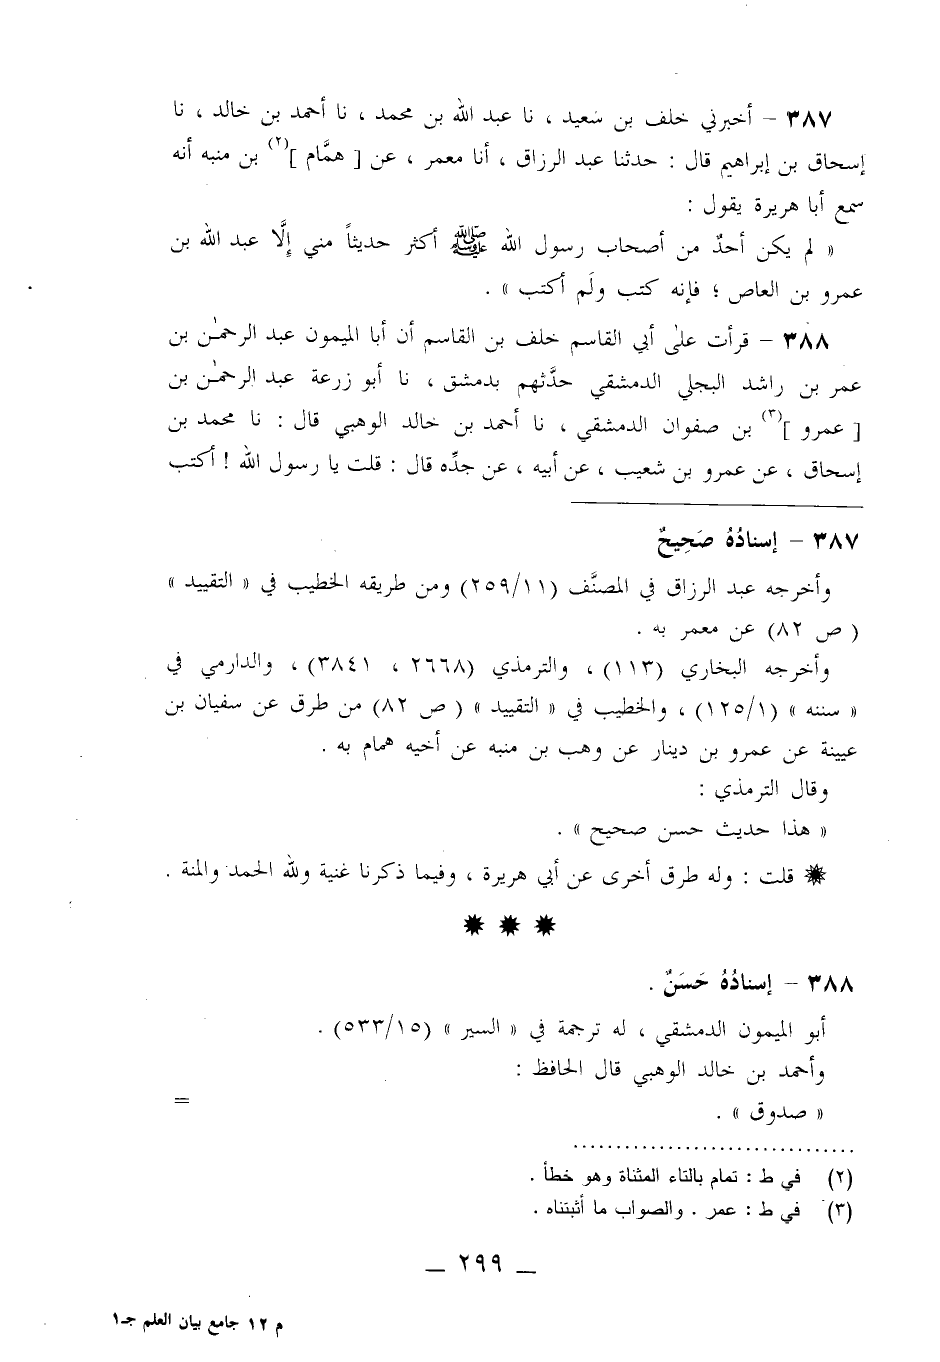 ٣٨٧ - أخبرني خلف بن سَعيد ، نا عبد الله بن محمد ، نا أحمد بن خالد ، نا
إسحاق بن إبراهيم قال : حدثنا عبد الرزاق ، أنا معمر ، عن [ همَّام ](٢) بن منبه أنه
سمع أبا هريرة يقول :
« لم يكن أحدٌ من أصحاب رسول الله ﷺ أكثر حديثاً مني إلَّا عبد الله بن
عمرو بن العاص ؛ فإنه كتب ولَم أكتب » .
٣٨٨ - قرأت علىٰ أبي القاسم خلف بن القاسم أن أبا الميمون عبد الرحمٰن بن
عمر بن راشد البجلي الدمشقي حدَّثهم بدمشق ، نا أبو زرعة عبد الرحمٰن بن
[ عمرو ](٣) بن صفوان الدمشقي ، نا أحمد بن خالد الوهبي قال : نا محمد بن
إسحاق ، عن عمرو بن شعيب ، عن أبيه ، عن جدِّه قال : قلت يا رسول الله ! أكتب
٣٨٧ - إسنادُهُ صَحِيحٌ
وأخرجه عبد الرزاق في المصنَّف (٢٥٩/١١) ومن طريقه الخطيب في « التقييد »
( ص ٨٢) عن معمر به .
وأخرجه البخاري (١١٣) ، والترمذي (٢٦٦٨ ، ٣٨٤١) ، والدارمي في
« سننه » (١٢٥/١) ، والخطيب في « التقييد » ( ص ٨٢) من طرق عن سفيان بن
عيينة عن عمرو بن دينار عن وهب بن منبه عن أخيه همام به .
وقال الترمذي :
« هذا حديث حسن صحيح » .
✹ قلت : وله طرق أخرى عن أبي هريرة ، وفيما ذكرنا غنية ولله الحمد والمنة .
✹ ✹ ✹
٣٨٨ - إسنادُهُ حَسَنٌ .
أبو الميمون الدمشقي ، له ترجمة في « السير » (٥٣٣/١٥) .
وأحمد بن خالد الوهبي قال الحافظ :
« صدوق » .
=
(٢) في ط : تمام بالتاء المثناة وهو خطأ .
(٣) في ط : عمر . والصواب ما أثبتناه .
_ ٢٩٩ _
م ١٢ جامع بيان العلم جـ١